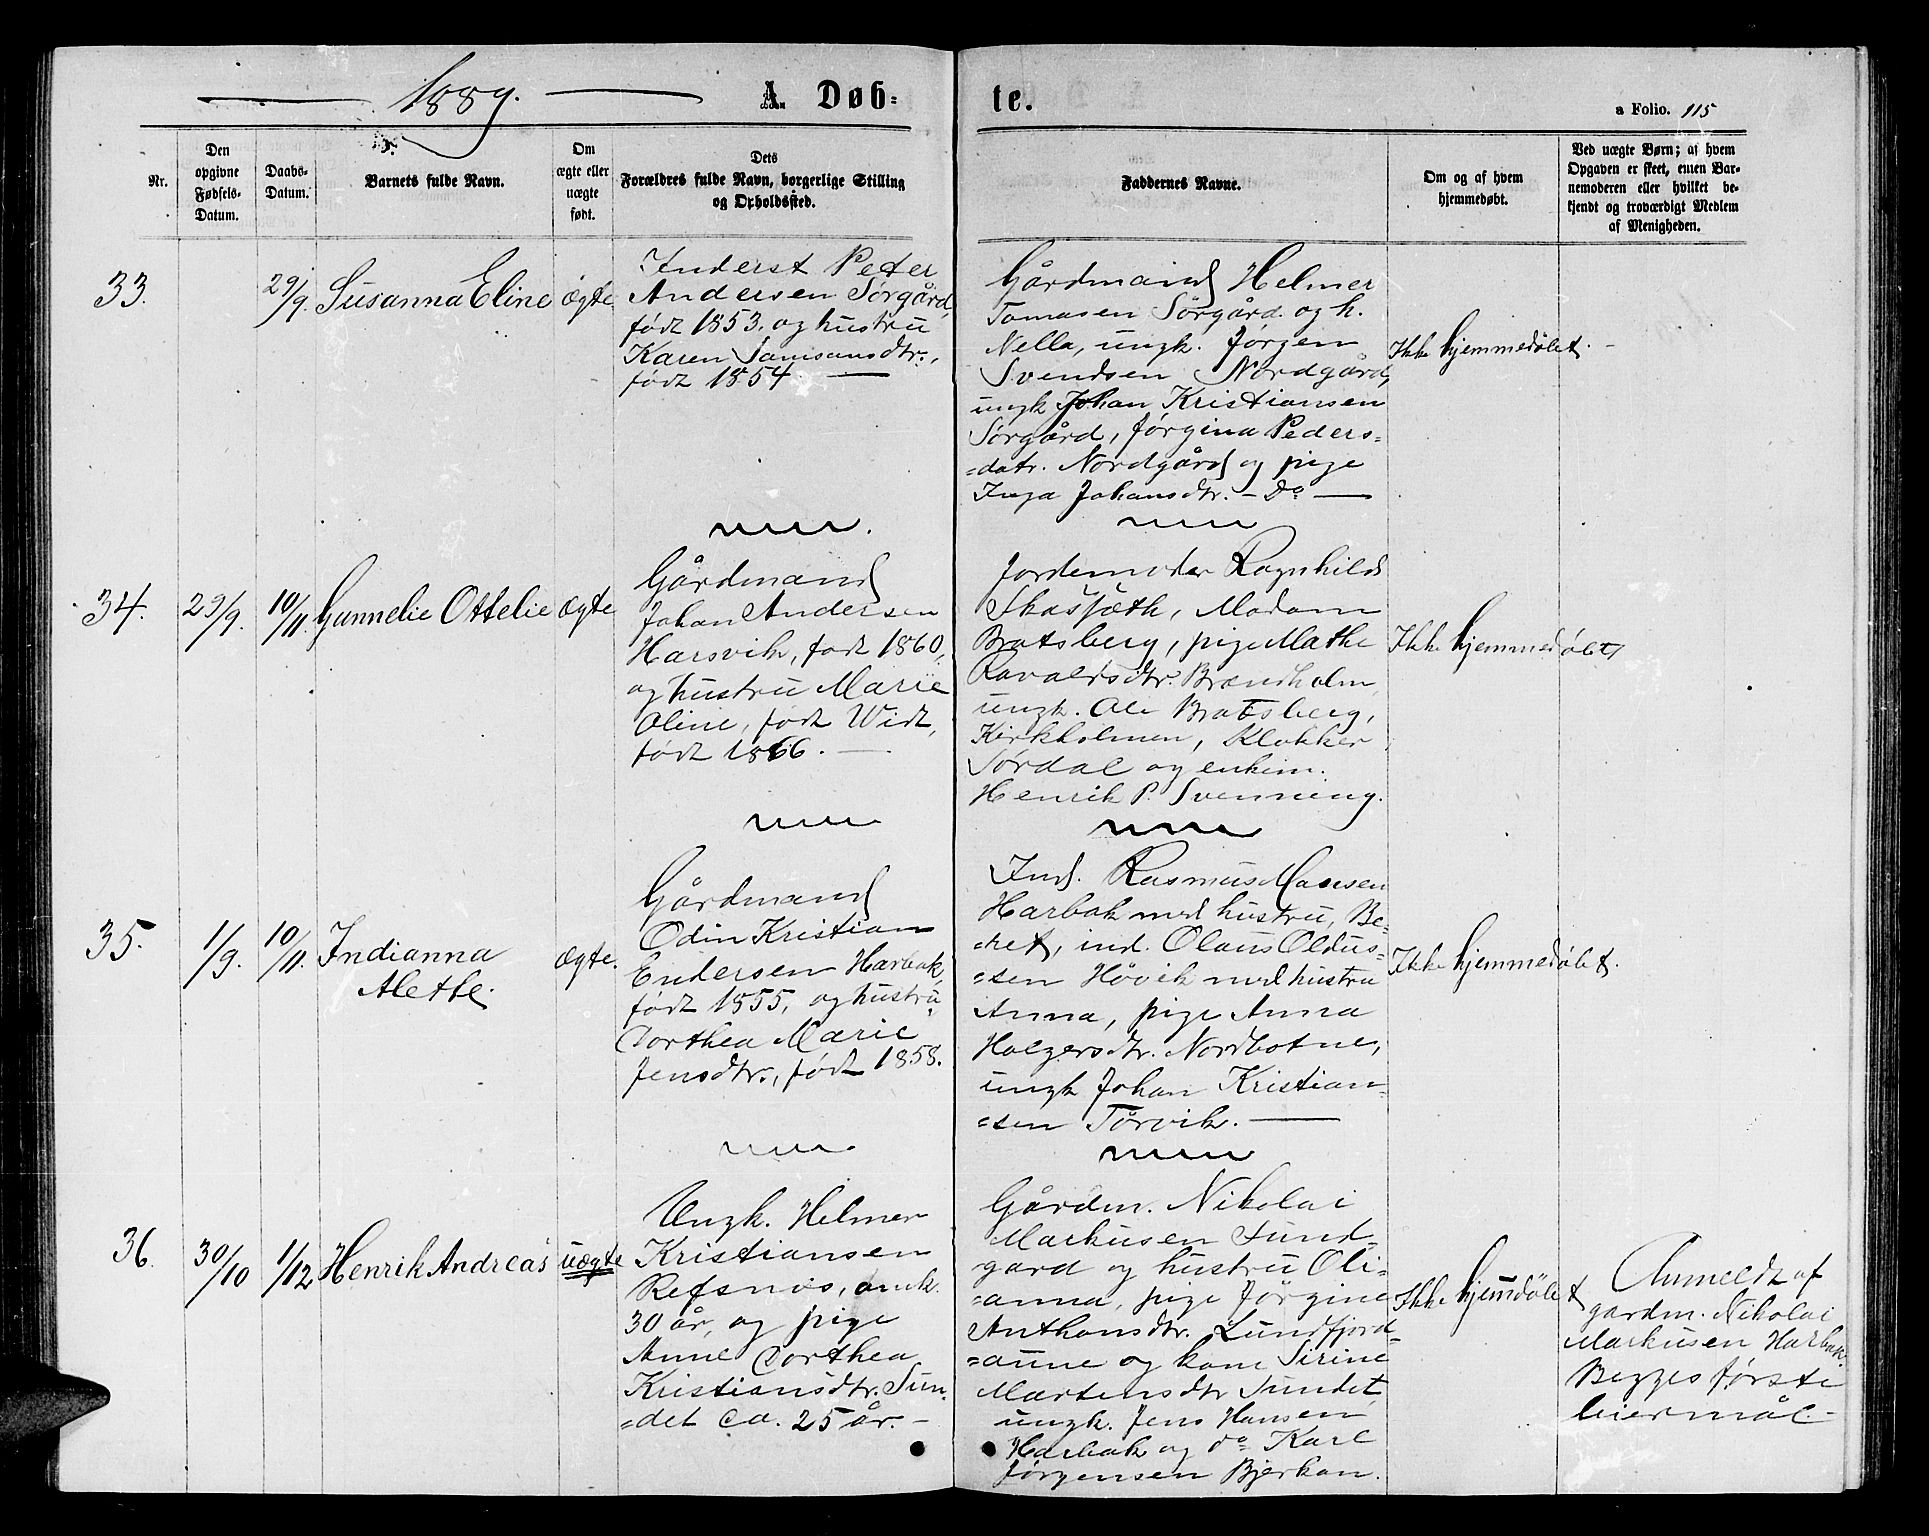 1889.
A. Døb-
te.
a Folio. 115
Nr.
Den
opgivne
Fødsels-
Datum.
Daabs-
Datum.
Barnets fulde Navn.
Om
ægte eller
uægte
født.
Dets
Forældres fulde Navn, borgerlige Stilling
og Opholdssted.
Faddernes Navne.
Om og af hvem
hjemmedøbt.
Ved uægte Børn; af hvem
Opgaven er skeet, enten Bar-
nemoderen eller hvilket be-
kjendt og troværdigt Medlem
af Menigheden.
33.
29/9.
Susanna Eline
ægte
Inderst Peter
Andersen Sørgård,
født 1853. og hustru
Karen Samsonsdtr.,
født 1854.
Gårdmand Helmer
Tomasen Sørgård og h.
Nella, ungk. Jørgen
Svendsen Nordgård,
ungk Johan Kristiansen
Sørgård, Jørgina Peders-
=datr. Nordgård og pige
Inga Johansdtr. - Do -
Ikke hjemmedøbt.
34.
29/9.
10/11.
Gunnelie Ottelie
ægte
Gårdmand
Johan Andersen
Harsvik, født 1860,
og hustru Marie
Oline, født Widt,
født 1866.
Jordemoder Ragnhild
Skasfæth, Madam
Bratsberg, pige Mathe
Ravaldsdtr. Brændholm,
ungk. Ole Bratsberg,
Kirkholmen, Klokker
Sørdal og enkem.
Henrik P. Svenning.
Ikke hjemmedøbt,
35.
1/9.
10/11.
Indianna
Alette.
ægte.
Gårdmand
Odin Kristian
Endersen Harbak,
født 1855, og hustru
Dorthea Marie
Jensdtr., født 1858.
Ind. Rasmus Hansen
Harbak med hustru, Be-
=ret, ind. Olaus Oldus-
=sen Høvik med hustru
Anna, pige Anna
Holgersdtr. Nordbotne,
ungk Johan Kristian-
=sen Tørvik.
Ikke hjemmedøbt.
36.
30/10
1/12
Henrik Andreas
uægte
Ungk. Helmer
Kristiansen
Refsnes, omk.
30 år, og pige
Anne Dorthea
Kristiansdtr. Sun-
=det ca. 25 år. -
Gårdm. Nikolai
Markusen Sund-
gård og hustru Oli-
=anna, pige Jørgine
Anthonsdtr. Lundfjord-
=aune og kone Sirine
Martensdtr Sundet,
ungk. Jens Hansen
Harbak og do Karl
Jørgensen Bjerkan.
Ikke hjemdøbt
Anmeldt af
gårdm. Nikolai
Markusen Harbak.
Begges første
leiermål. -